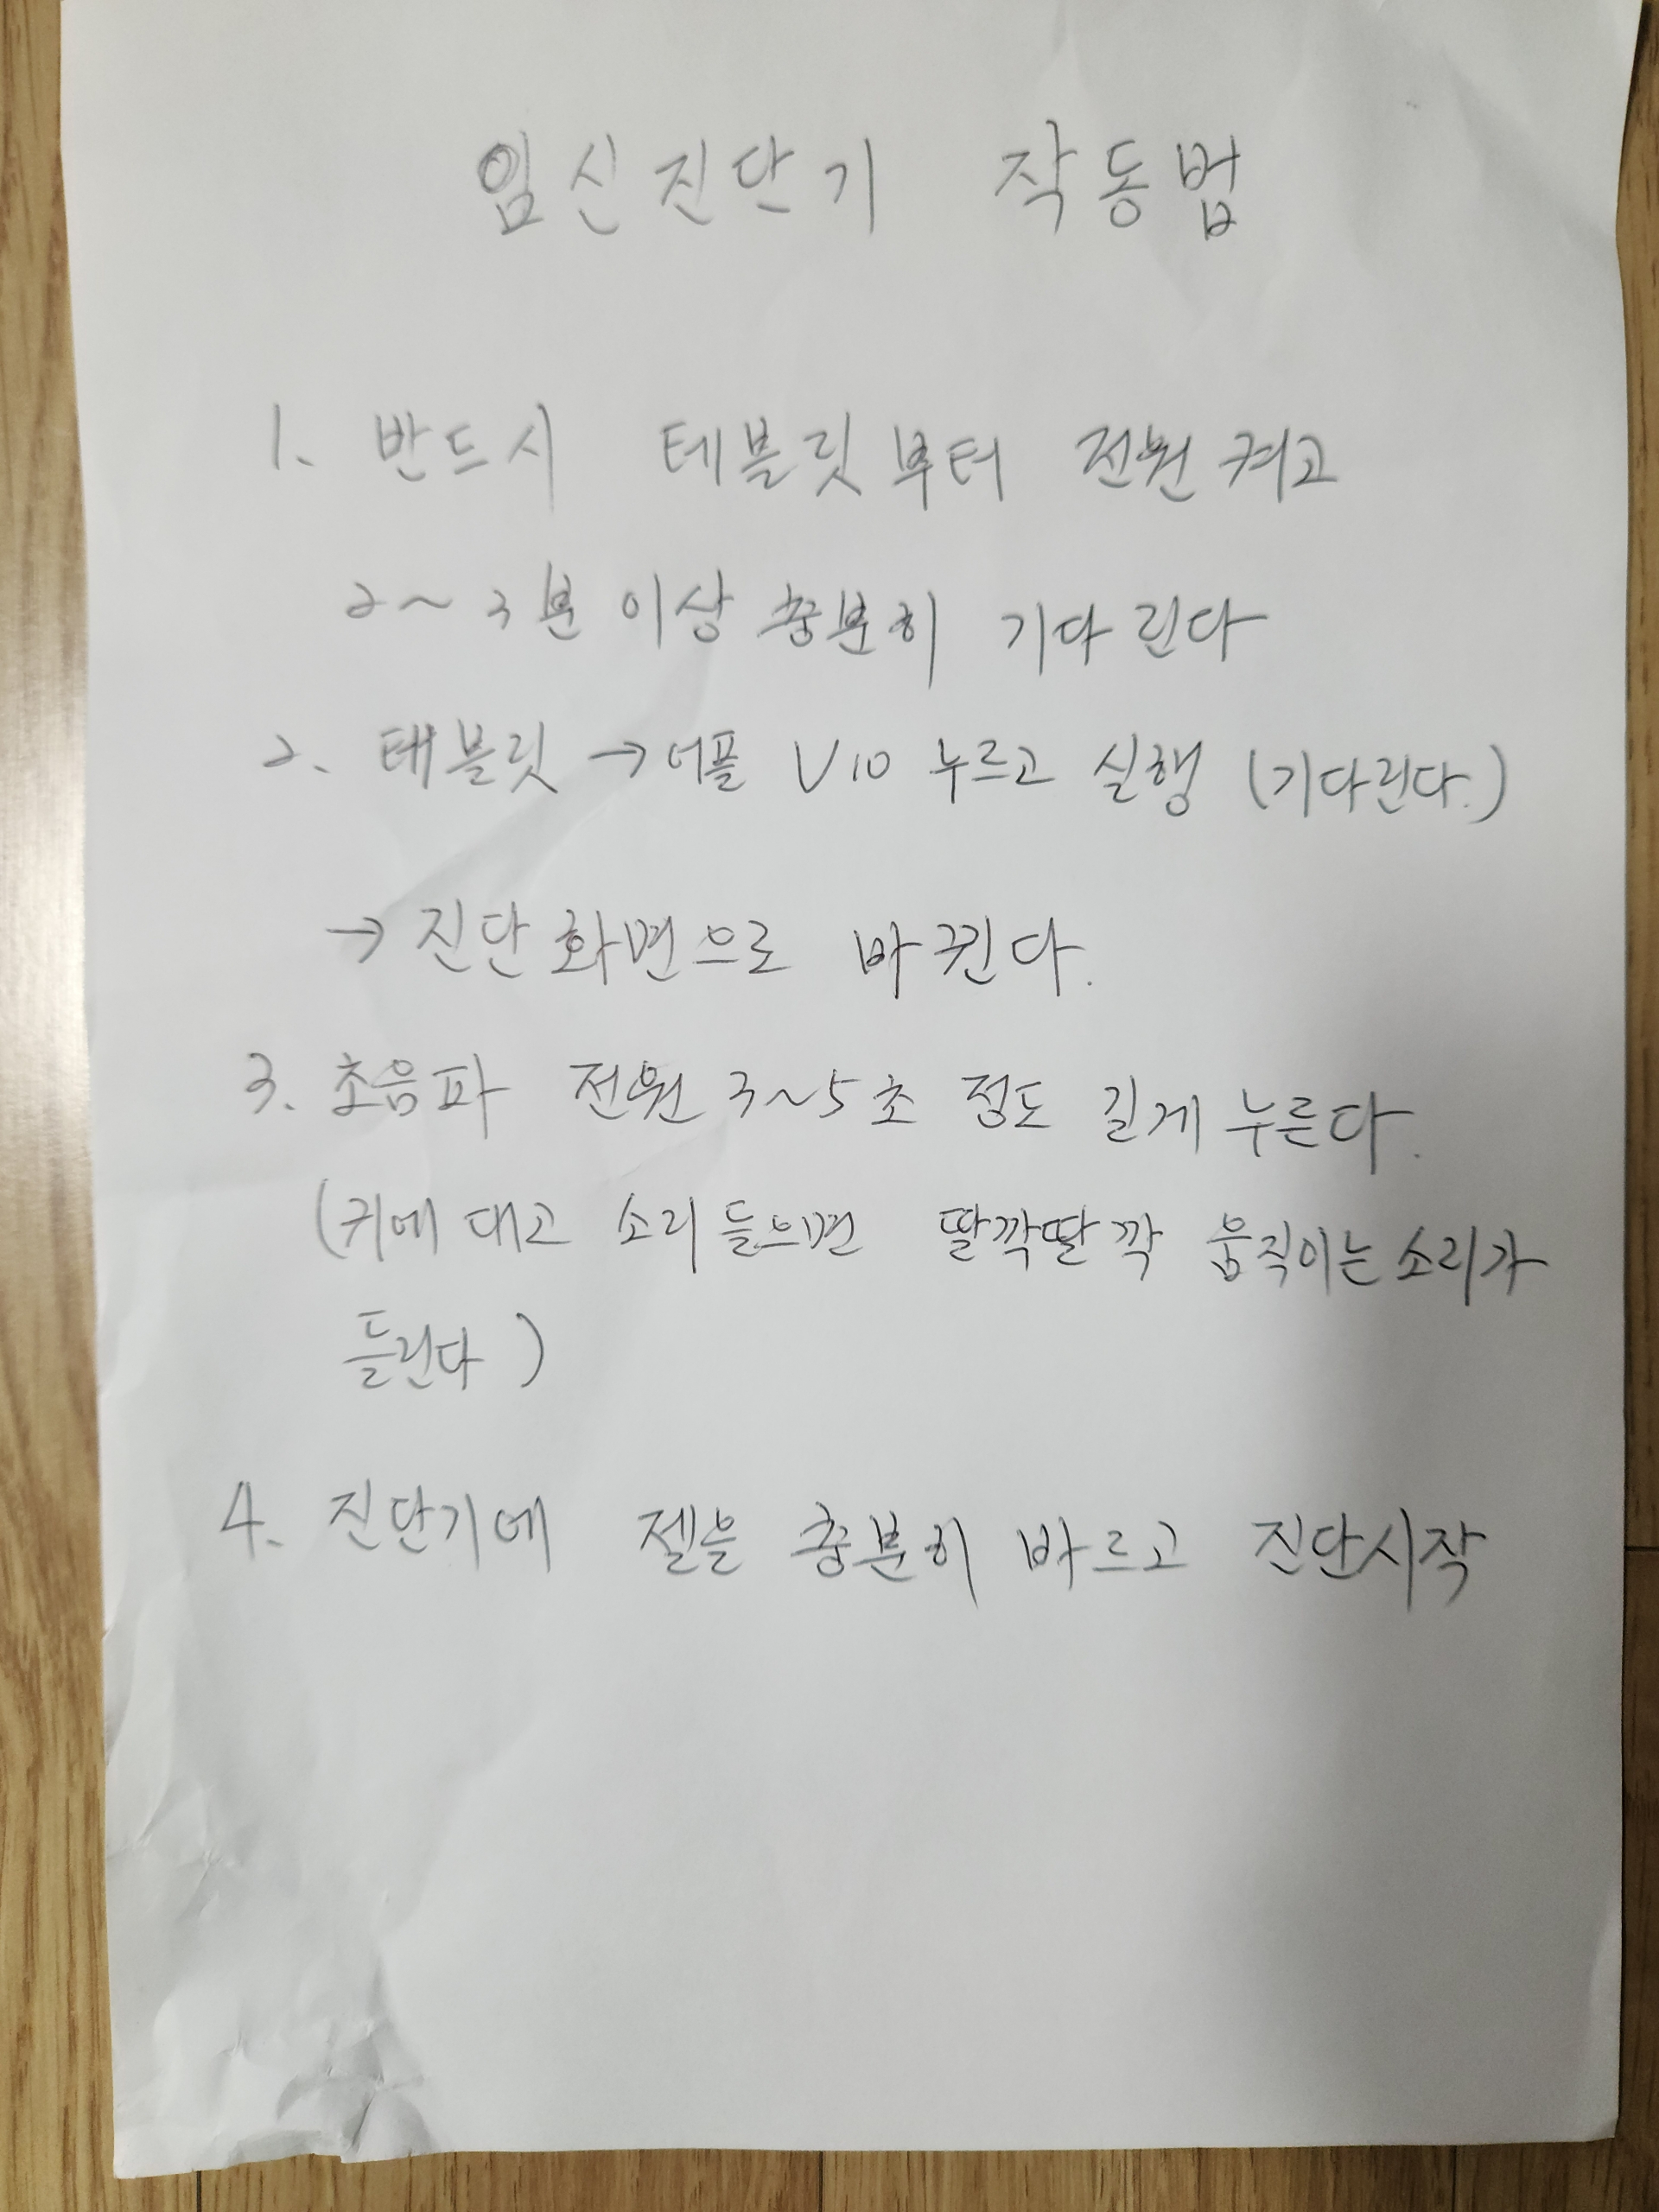 임신진단기 작동법
1. 반드시 테블릿부터 전원켜고
2~3분 이상 충분히 기다린다
2. 테블릿 → 어플 V10 누르고 실행 (기다린다.)
→ 진단화면으로 바뀐다.
3. 초음파 전원 3~5초 정도 길게 누른다.
(귀에 대고 소리 들으면 딸깍딸깍 움직이는 소리가
들린다)
4. 진단기에 젤을 충분히 바르고 진단시작